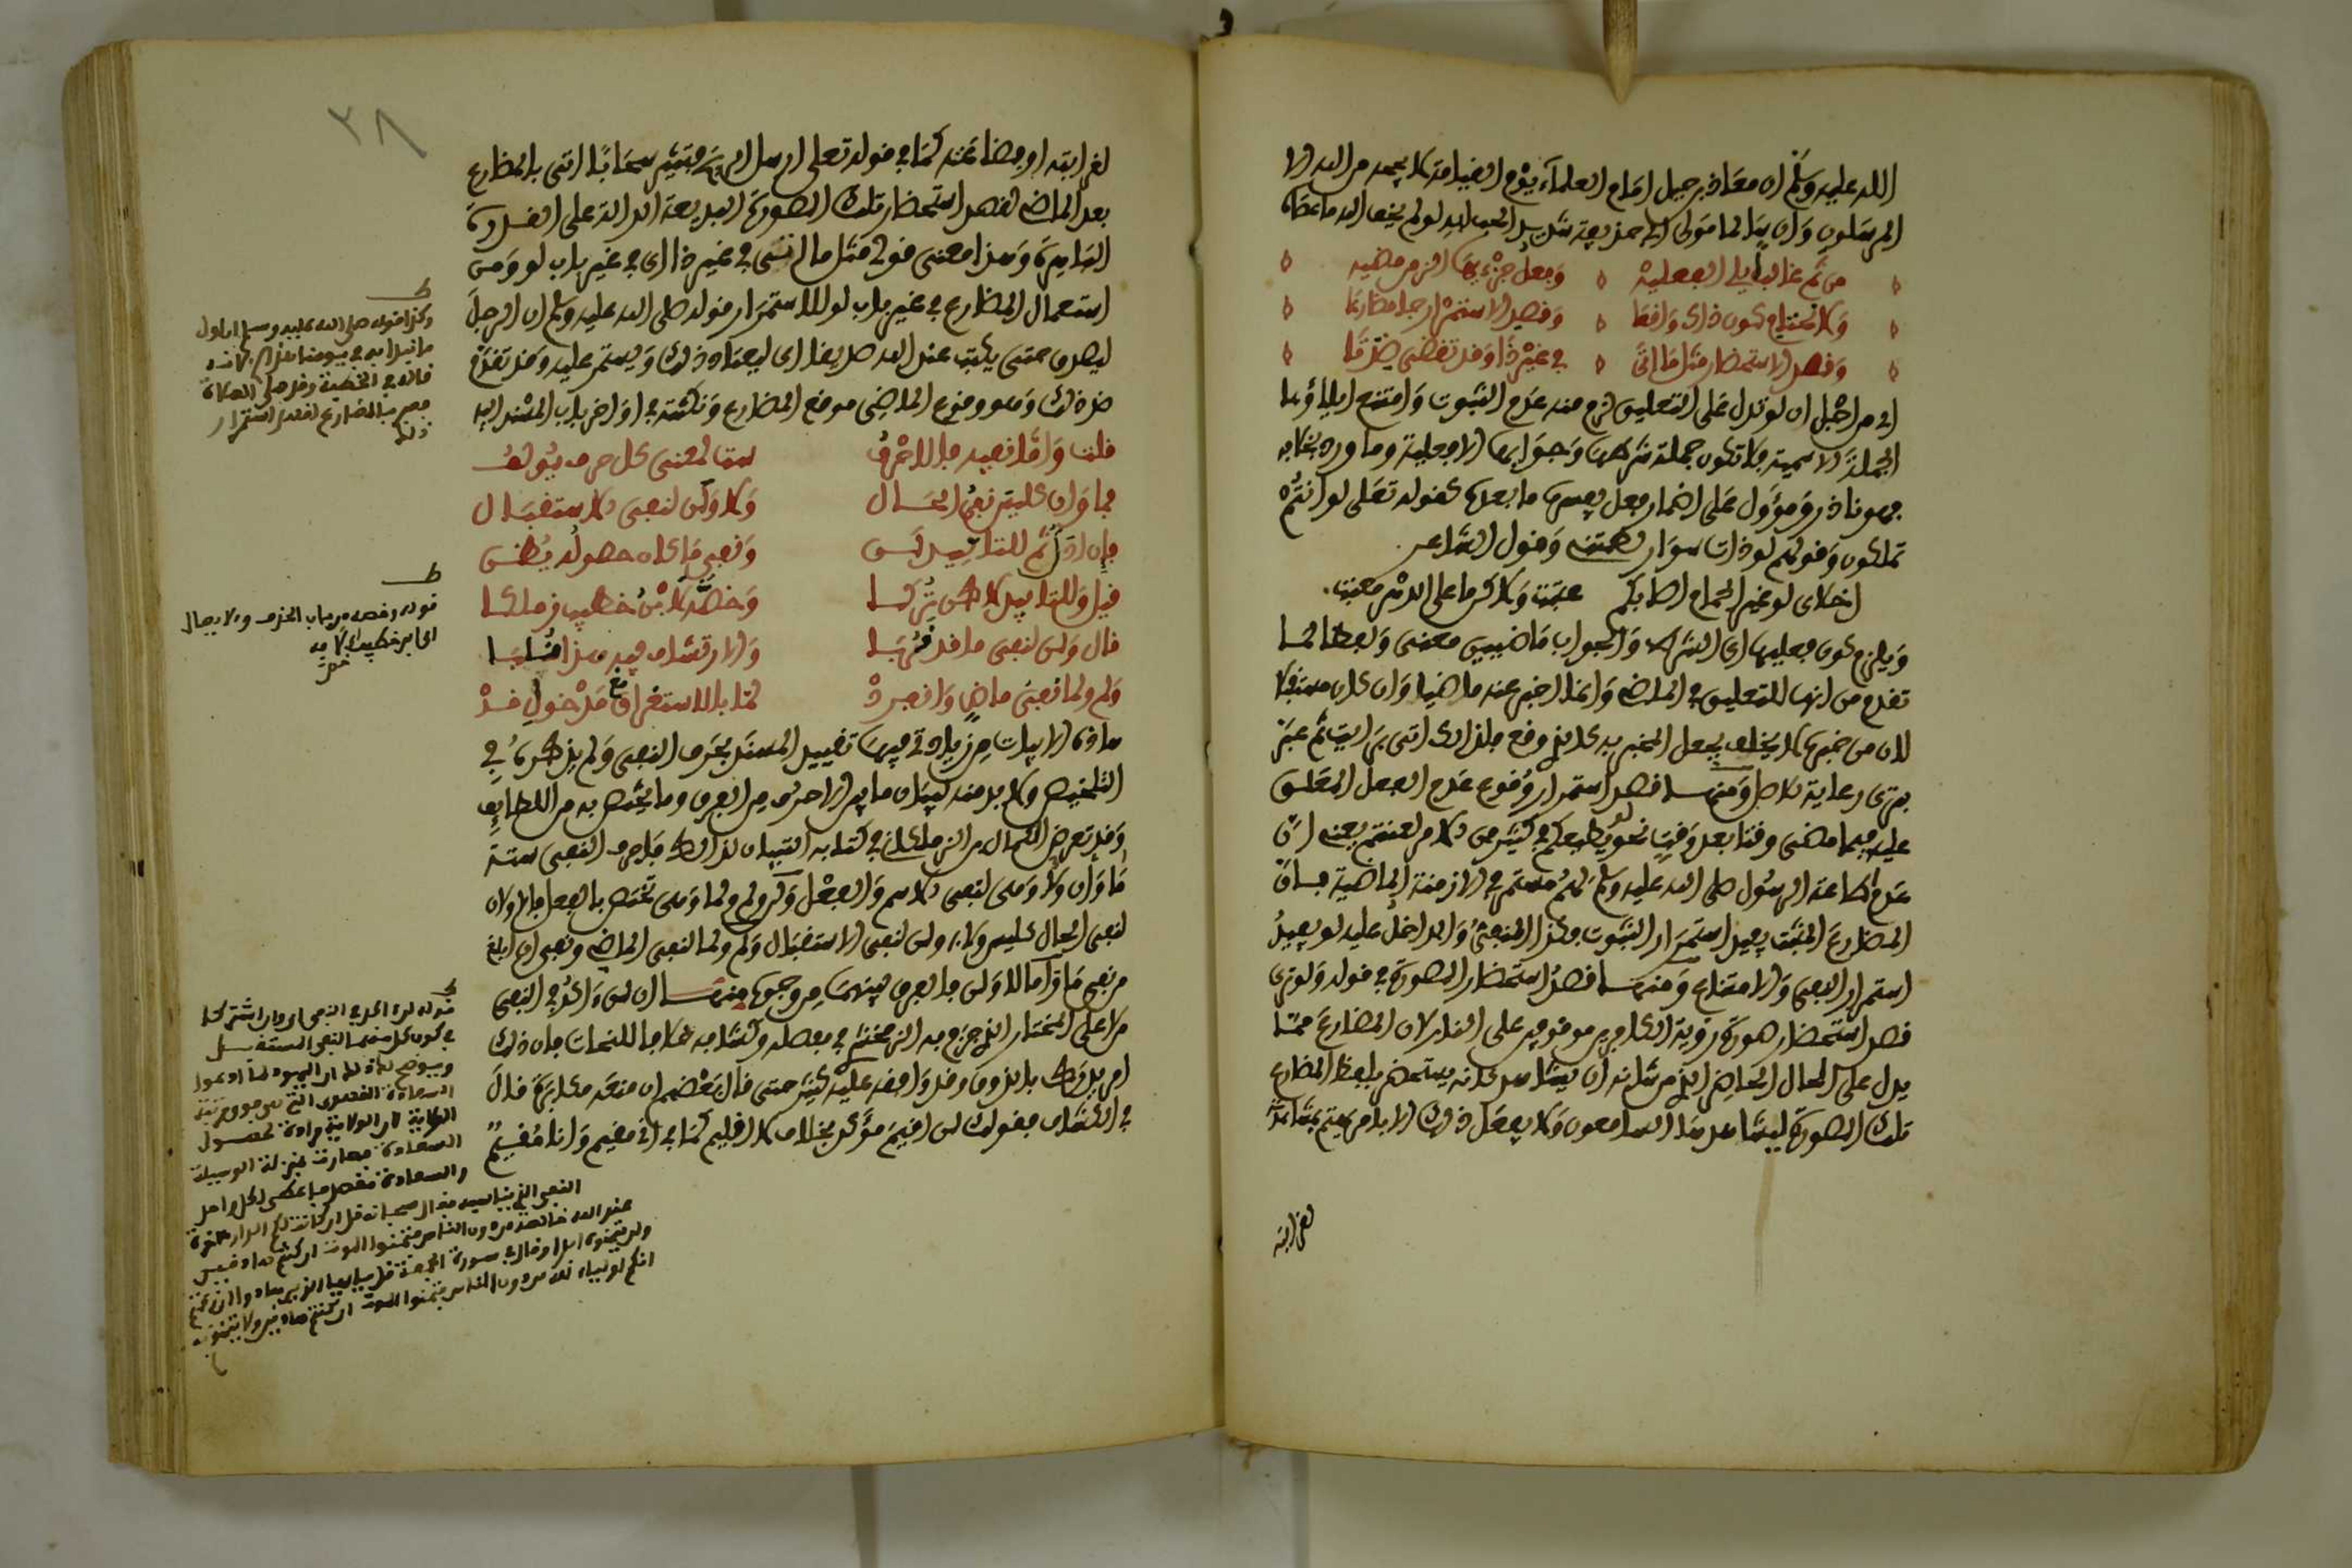 الله عليه وسلم ان معاذ بن جبل امام العلماء يوم القيامة لا يحجبه من الله الا
المرسلون وان سالما مولى ابي حذيفة شديد الحب لله لو لم يخف الله ما عصاه
من ثم غالبا يلي الفعليه وفعل جزءيها الزم مضيه
ولا يحتاج كون ذاك واقعا وقصد الاستمرار جا مضارعا
وقصد الاستحضار مثل ما اتى في غير ذا وقد تقضى ضد تا
اي من اجل ان لو تدل على التعليق لزم منه عدم الثبوت وامتنع ايلاؤها
الجملة الاسمية فلا تكون جملة شرطها وجوابها الا فعلية وما ورد بخلافه
فهو نادر ومؤول على اضمار فعل يفسره ما بعدها كقوله تعلى لو انتم
تملكون وقولهم لو ذات سوار لطمتني وقول الشاعر
اخلاي لو غير الحمام اصابكم عتبت ولاكن ما على الدهر معتب
ويلزم كون فعليها اي الشرط والجواب ماضيين معنى ولفظا لما
تقدم من انها للتعليق في الماضي وانما اخبر عنه ماضيا وان كان مستقبلا
لان من خبره لا يخلف يجعل المخبر به كالذي وقع فلذا اتى برايت ثم عبر
بترى رعاية للاصل ومنها قصد استمرار وقوع عدم الفعل المعلق
عليه فيما مضى وقتا بعد وقت نحو لو يطيعكم في كثير من الامر لعنتم يعني ان
عدم اطاعة الرسول صلى الله عليه وسلم لهم مستمر في الازمنة الماضية فان
المضارع المثبت يفيد استمرار الثبوت وكذا المنفي والداخل عليه لو يفيد
استمرار النفي والامتناع ومنها قصد استحضار الصورة في قوله ولو ترى
قصد استحضار صورة روية الكافرين موقوفين على النار لان المضارع مما
يدل على الحال الحاضر الذي من شانه ان يشاهد كانه يستحضر بلفظ المضارع
تلك الصورة ليشاهدها السامعون ولا يفعل ذلك الا بامر يهتم بمشاهدته
لغرابته
٣٨
لغرابته او فضاعته كما في قوله تعلى ارسل الرياح فتثير سحابا اتى بالمضارع
بعد الماضي لقصد استحضار تلك الصورة البديعة الدالة على القدرة
الباهرة وهذا معنى قولي مثل ما اتى في غير ذا اي في غير باب لو ومن
استعمال المضارع في غير باب لو للاستمرار قوله صلى الله عليه وسلم ان الرجل
ليصدق حتى يكتب عند الله صديقا اي ليعتاد ذلك ويستمر عليه وقد تقدم
ضد ذلك وهو وقوع الماضي موقع المضارع ونكتته في اواخر باب المسند اليه
قلت واما نفيه فالاحرف ست لمعنى كل حرف يولف
فما وان كليس نفي الحال ولا ولن لنفي الاستقبال
فان ادى ثم للتابيد لن ونفي ما كان حصوله يظن
قيل وللتابيد لاكن تركا وخصه لا ابن خطيب زملكا
قال ولن لنفي ما قد قربا والارتشاف فيه هذا قد ابى
ولم ولما نفي ماض وانفرد لما بالاستغراق مع مدخول قد
هاذه الابيات من زيادتي فيها تقييد المسند بحرف النفي ولم يذكره في
التلخيص ولا بد منه لبيان ما بين الاحرف من الفرق وما يختص به من اللطايف
وقد تعرض الكمال ابن الزملكاني في كتابه التبيان لذلك فاحرف النفي ستة
ما وان ولا وهي لنفي الاسم والفعل ولن ولم ولما وهي تختص بالفعل فالاولان
لنفي الحال كليس ولا ولن لنفي الاستقبال ولم ولما لنفي الماضي ونفي ان ابلغ
من نفي ما واما لا ولن فالفرق بينهما من وجوه منها ان لن اكد في النفي
من لا على المختار الذي جزم به الزمخشري في مفصله وكشافه خلافا للنحاة فان ذلك
امر يدرك بالذوق وقد وافقه عليه كثير حتى قال بعضهم ان منعه مكابرة قال
في الكشاف فقولك لن اقيم موكد بخلاف لا اقيم كما في اني مقيم وانا مقيم
ط
وكذا قوله صلى الله عليه وسلم ان اول
ما نبدا به في يومنا هذا لانه
قاله في الخطبة وقد صلى الصلاة
فعبر بالمضارع لقصد استمرار
ذلك
ط
قوله وخصه من باب الحذف والايصال
النفي الذي يناسبه فقال سبحانه قل ان كانت لكم الدار الاخرة
عند الله خالصة من دون الناس فتمنوا الموت ان كنتم صادقين
ولن يتمنوه ابدا وقال في سورة الجمعة قل يا ايها الذين هادوا ان زعمتم
انكم اولياء لله من دون الناس فتمنوا الموت ان كنتم صادقين ولا يتمنونه